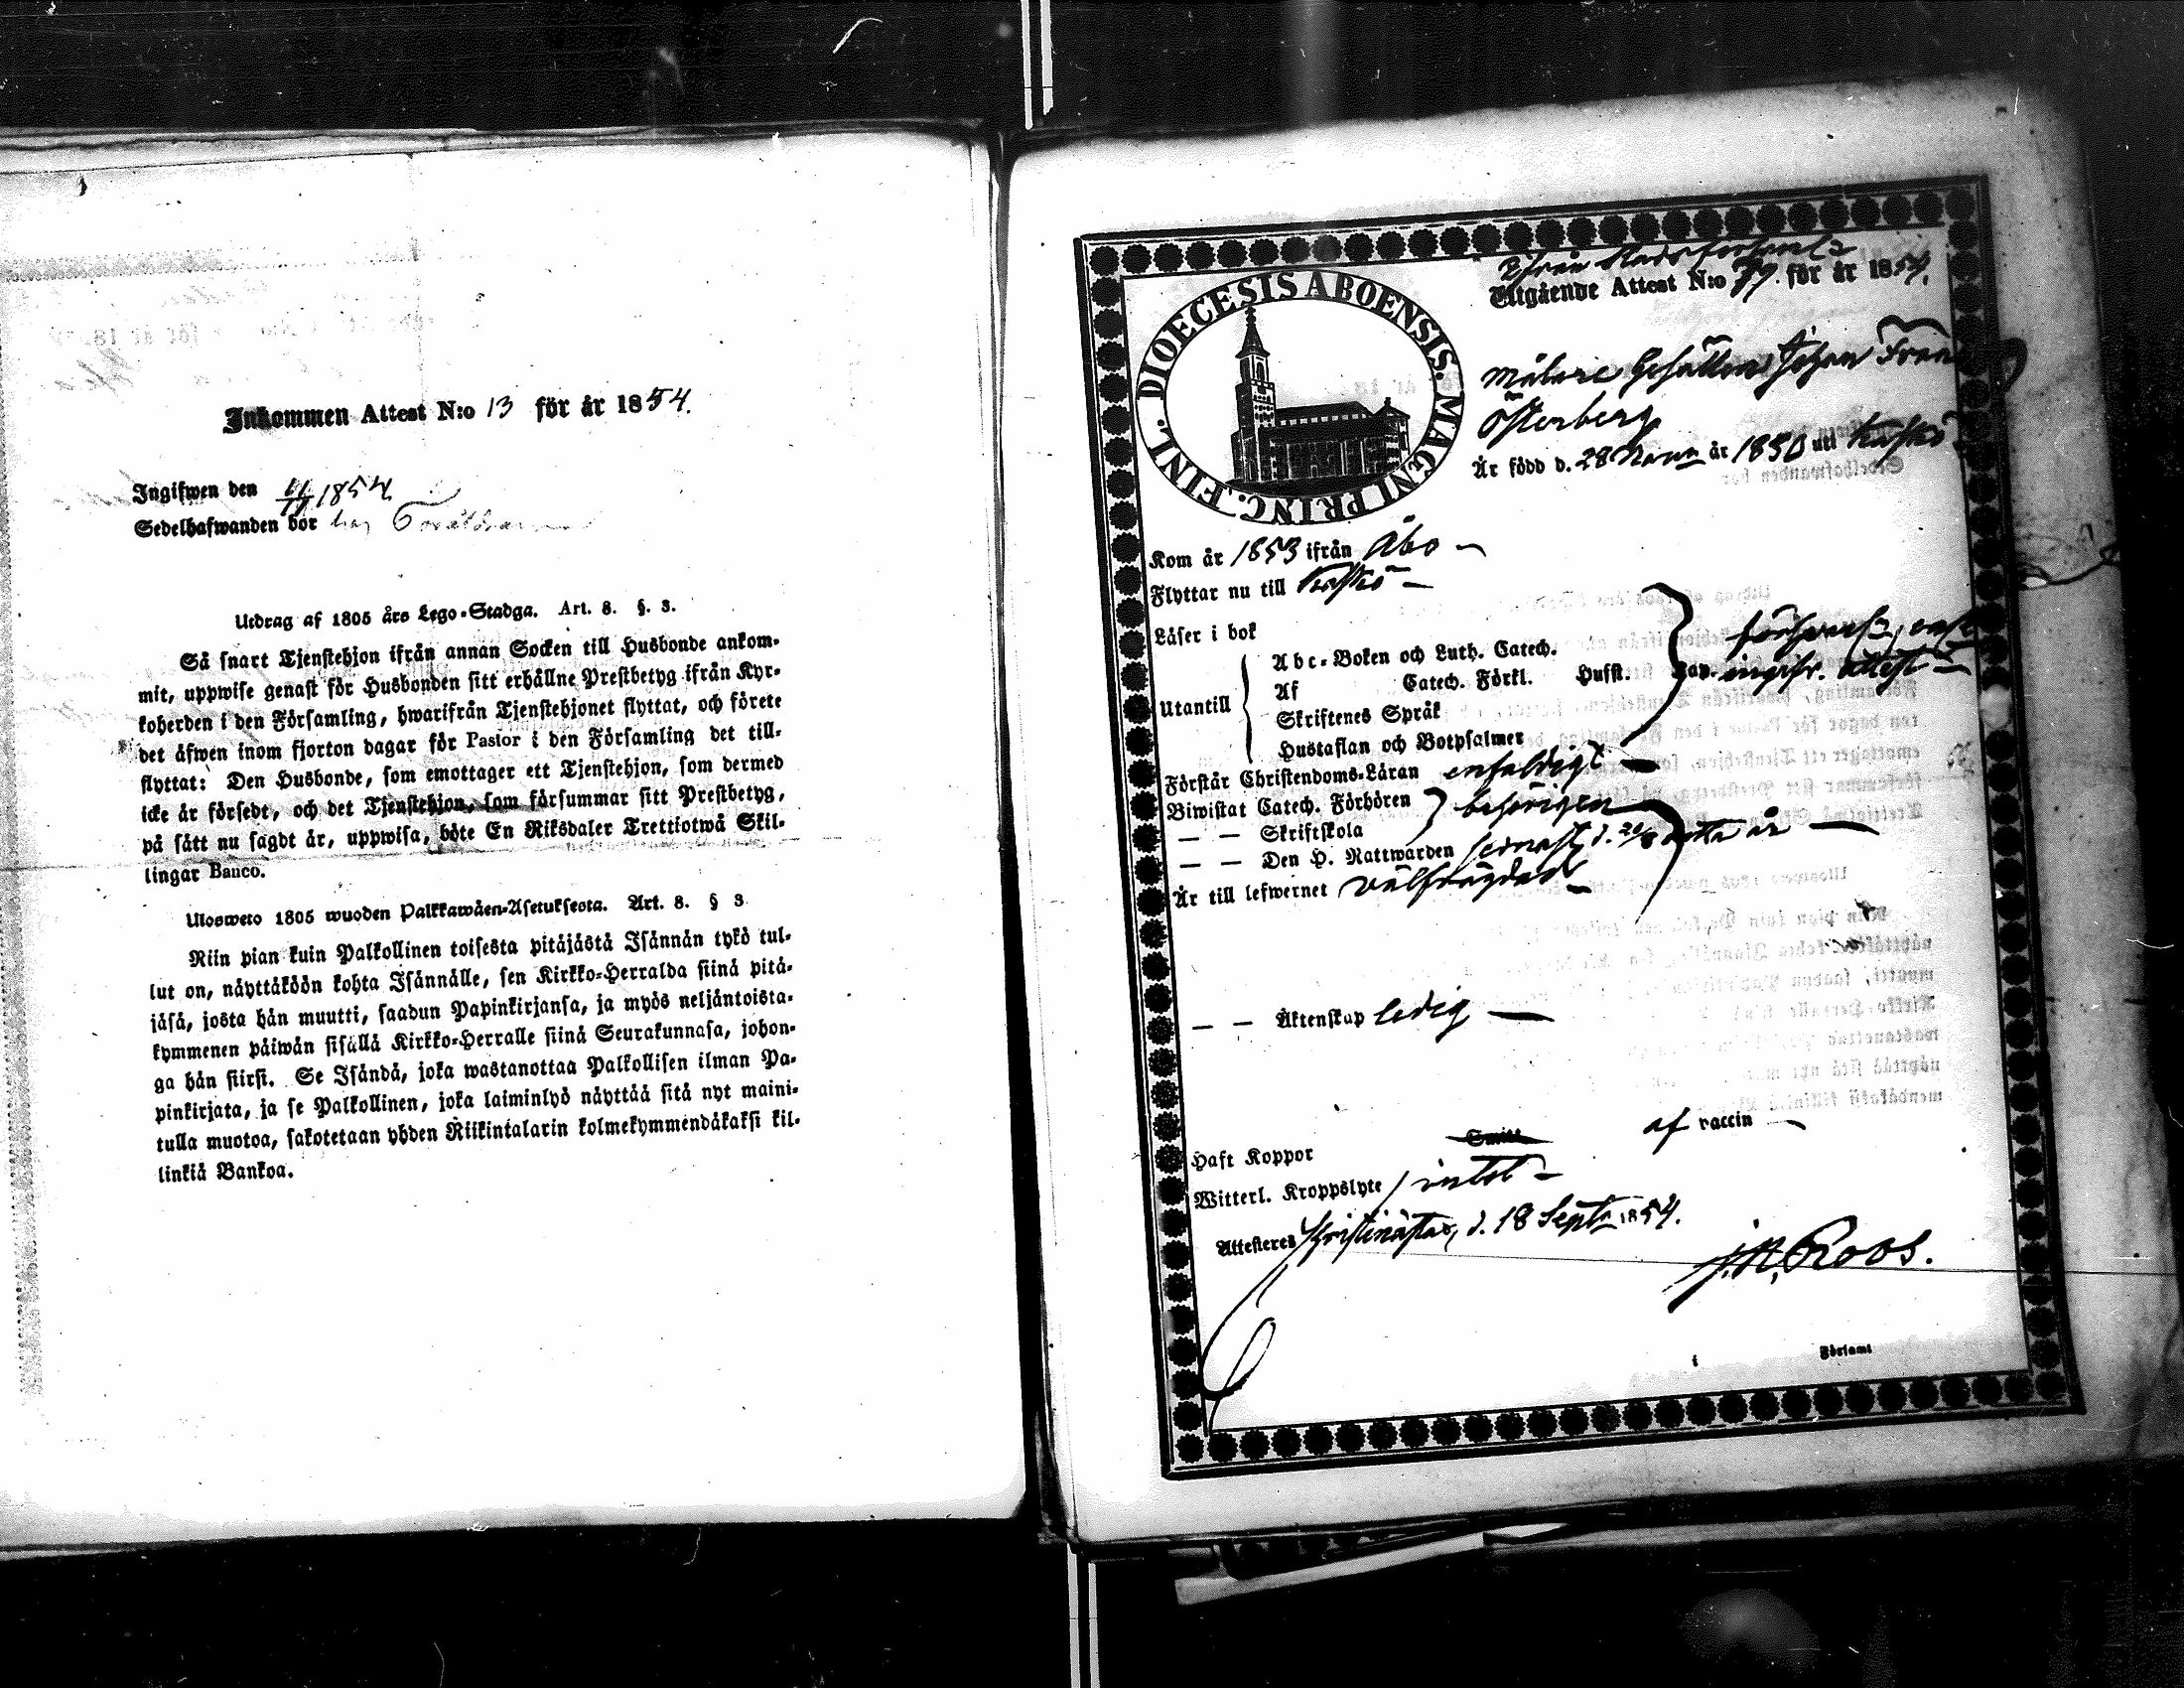 Inkommen Attest N:o 13 för år 1854.
Ingifwen den 11/11 1854
Sedelhafwanden bor hos
Utdrag af 1805 års Lego-Stadga. Art. 8. §. 3.
Så snart Tjenstehjon ifrån annan Socken till Husbonde ankom-
mit, uppwise genast för Husbonden sitt erhållne Prestbetyg ifrån Kyr-
koherden i den Församling, hwarifrån Tjenstehjonet flyttat, och förete
det äfwen inom fjorton dagar för Pastor i den Församling det till-
flyttat: Den Husbonde, som emottager ett Tjenstehjon, som dermed
icke är försedt, och det Tjenstehjon, som försummar sitt Prestbetyg,
på sätt nu sagdt är, uppwisa, böte En Riksdaler Trettiotwå Skil-
lingar Banco.
Ulosweto 1805 wuoden Palkkawäen-Asetuksesta. Art. 8. § 3
Niin pian kuin Palkollinen toisesta pitäjästä Isännän tykö tul-
lut on, näyttäköön kohta Isännälle, sen Kirkko-Herralda siinä pitä-
jäsä, josta hän muutti, saadun Papinkirjansa, ja myös neljäntoista-
kymmenen päiwän sisällä Kirkko-Herralle siinä Seurakunnasa, johon-
ga hän siirsi. Se Isändä, joka wastanottaa Palkollisen ilman Pa-
pinkirjata, ja se Palkollinen, joka laiminlyö näyttää sitä nyt maini-
tulla muotoa, sakotetaan yhden Riikintalarin kolmekymmendäkaksi kil-
linkiä Bankoa.
DIOECESIS ABOENSIS. MAGNI PRINC. FINL.
Ifrån
Utgående Attest N:o 79. för år 1854.
Målare Gesällen Johan Fran
Österberg
Är född d. 28 Novem år 1830 uti Kaskö
Kom år 1853 ifrån Åbo
Flyttar nu till Kaskö
Läser i bok
Utantill
Abc-Boken och Luth. Catech.
Af Catech. Förkl. Husst. Dav.
Skriftenes Språk
Hustaflan och Botpsalmer
förswarl., enl.
ingifv. attest
Förstår Christendoms-Läran enfaldigt
Biwistat Catech. Förhören behörigen
— — Skriftskola
— — Den H. Nattwarden senast d. detta år
Är till lefwernet välfrägdad
— — Äktenskap ledig
Haft Koppor Smitt af vaccin
Witterl. Kroppslyte intet
Attesteres Christinæstad, d. 18 Sept. 1854.
J. N. Roos.
i Församl